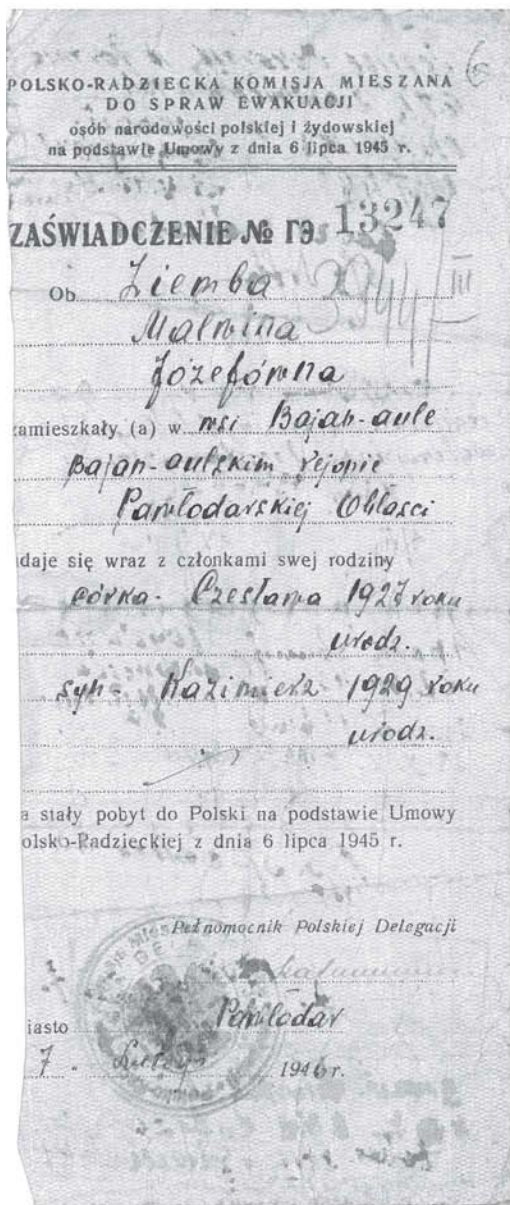 6
POLSKO-RADZIECKA KOMISJA MIESZANA
DO SPRAW EWAKUACJI
osób narodowości polskiej i żydowskiej
na podstawie Umowy z dnia 6 lipca 1945 r.
ZAŚWIADCZENIE № ГЭ 13247
3944/III
Ob. Ziemba
Malwina
Józefówna
zamieszkały (a) w wsi Bajan-aule
Bajan-aulskim rejonie
Pawłodarskiej Obłasci
daje się wraz z członkami swej rodziny
córka - Czesława 1927 roku
urodz.
syn - Kazimierz 1929 roku
urodz.
a stały pobyt do Polski na podstawie Umowy
olsko-Radzieckiej z dnia 6 lipca 1945 r.
Pełnomocnik Polskiej Delegacji
iasto Pawłodar
7 " Lutego 1946 r.